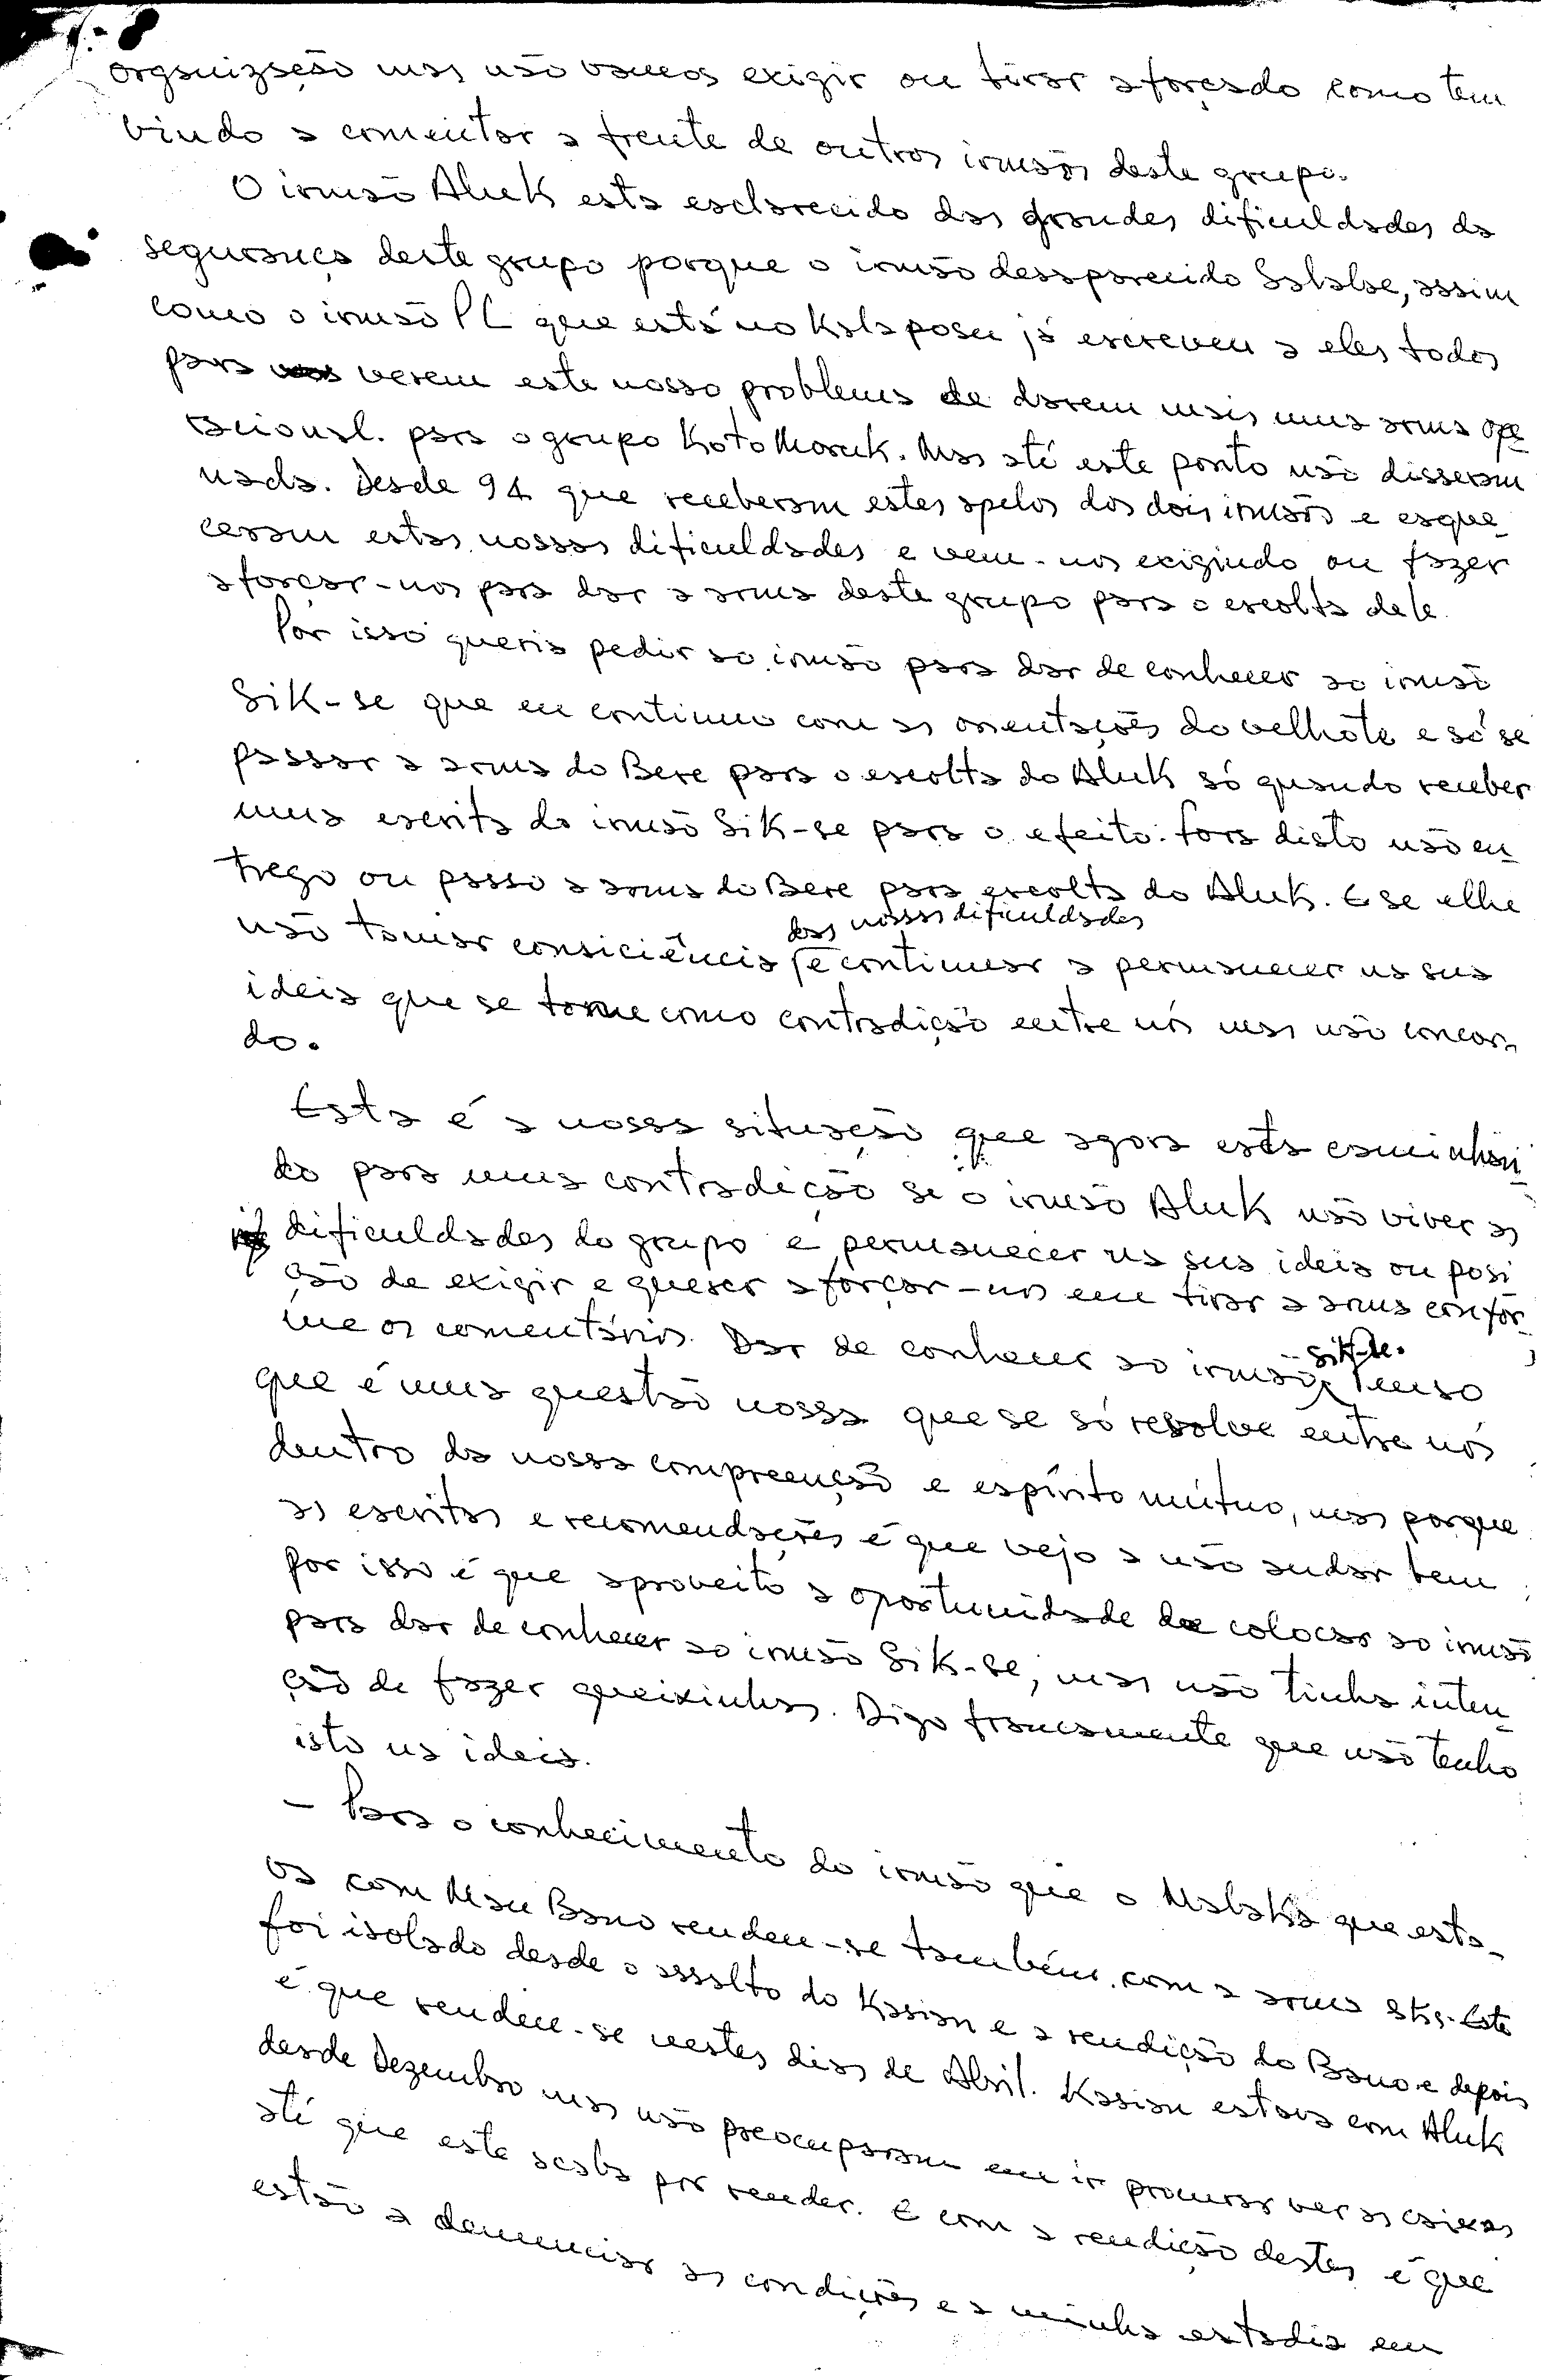 organização mas não vamos exigir ou tirar aforçado como tem
vindo a comentar a frente de outros irmãos deste grupo.
O irmão Aluk esta esclarecido das grandes dificuldades da
segurança deste grupo porque o irmão desaparecido Sabalae, assim
como o irmão PL que está no Kalaposu já escreveu a eles todos
para verem este nosso problema de darem mais uma arma ope
racional. para o grupo Koto Moruk. Mas até este ponto não disseram
nada. Desde 94 que receberam estes apelos dos dois irmãos e esque_
ceram estas nossas dificuldades e vem-nos exigindo ou fazer
aforçar-nos para dar a arma deste grupo para o escolta dele.
Por isso queria pedir ao irmão para dar de conhecer ao irmão
Sik-se que eu continuo com as orientações do velhote e só se
passar a arma do Bere para o escolta do Aluk só quando receber
uma escrita do irmão Sik-se para o efeito. fora disto não en_
trego ou passo a arma do Bere para escolta do Aluk. E se elhe
não tomar consiciência das nossas dificuldades e continuar a permanecer na sua
ideia que se torne como contradição entre nós mas não concor_
do.
Esta é a nossa situação que agora esta caminhan_
do para uma contradicção se o irmão Aluk não viver as
dificuldades do grupo e permanecer na sua ideia ou posi
ção de exigir e querer aforçar-nos em tirar a arma confor_
me os comentários. Dar de conhecer ao irmão Sik-se. Penso
que é uma questão nossa que se só resolve entre nós
dentro da nossa compreenção e espírito mútuo, mas porque
as escritas e recomendações é que vejo a não andar bem
por isso é que aproveito a oportunidade de colocar ao irmão
para dar de conhecer ao irmão Sik-se, mas não tinha inten_
ção de fazer queixinhas. Digo francamente que não tenho
isto na ideia.
- Para o conhecimento do irmão que o Malaka que esta_
va com Mau Bano rendeu-se também. com a arma sks. Este
foi isolado desde o assalto do Kasian e a rendição do Bano e depois
é que rendeu-se nestes dias de Abril. Kasian estava com Aluk
desde Dezembro mas não preocuparam em ir procurar ver as caixas
até que este acaba por render. E com a rendição destes é que
estão a denunciar as condições e a minha estadia em